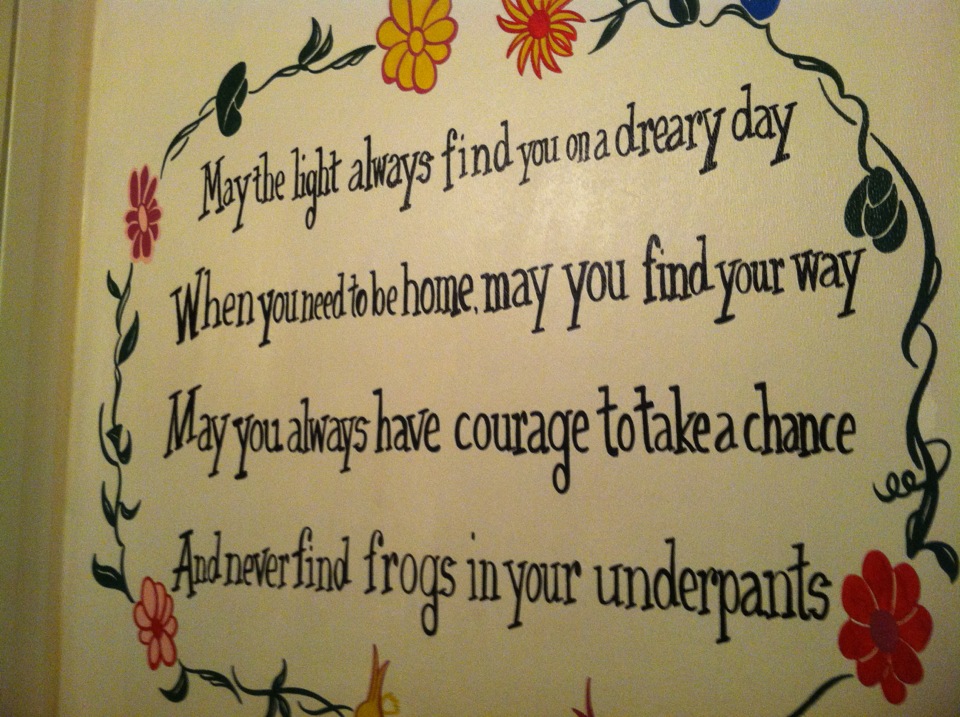 May the light always find you on a dreary day
When you need to be home, may you find your way
May you always have courage to take a chance
And never find frogs in your underpants